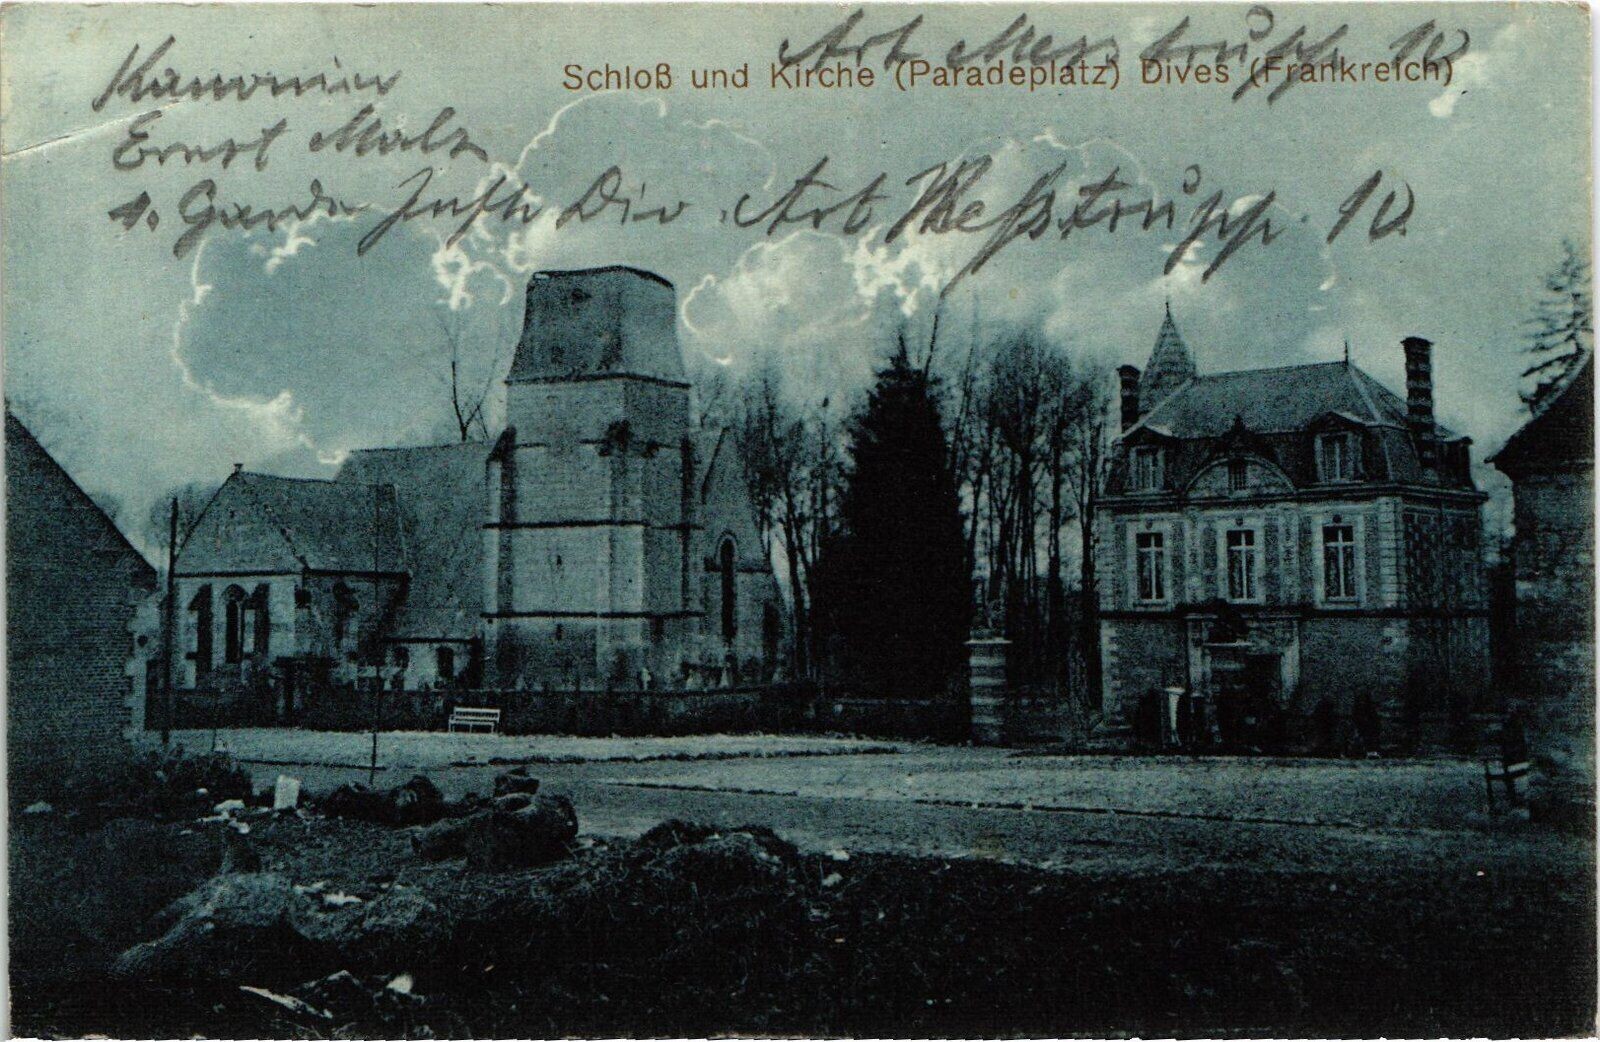 Art Mess trupp 10
Schloß und Kirche (Paradeplatz) Dives (Frankreich)
Kanonier
Ernst Malz
1. Garde Inft Div. Art Meßtrupp. 10.